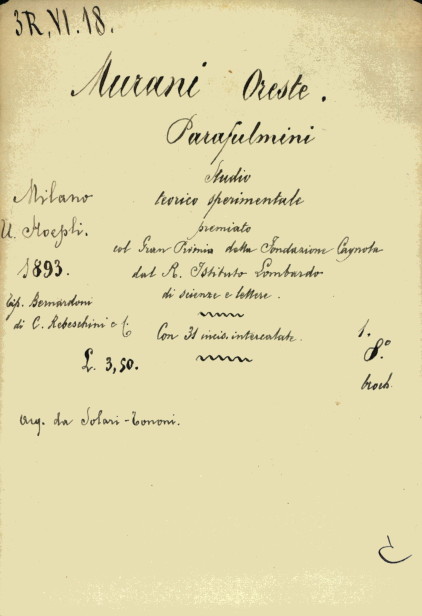 3R, VI. 18.
Murani Oreste.
Parafulmini
Studio
teorico sperimentale
premiato
col Gran Premio della Fondazione Cagnola
dal R. Istituto Lombardo
di scienze e lettere.
Milano
U. Hoepli.
1893.
Tip. Bernardoni
di C. Rebeschini e C.
Con 31 incis. intercalate.
1.
8.°
broch.
L. 3,50.
da Solari-Tononi.